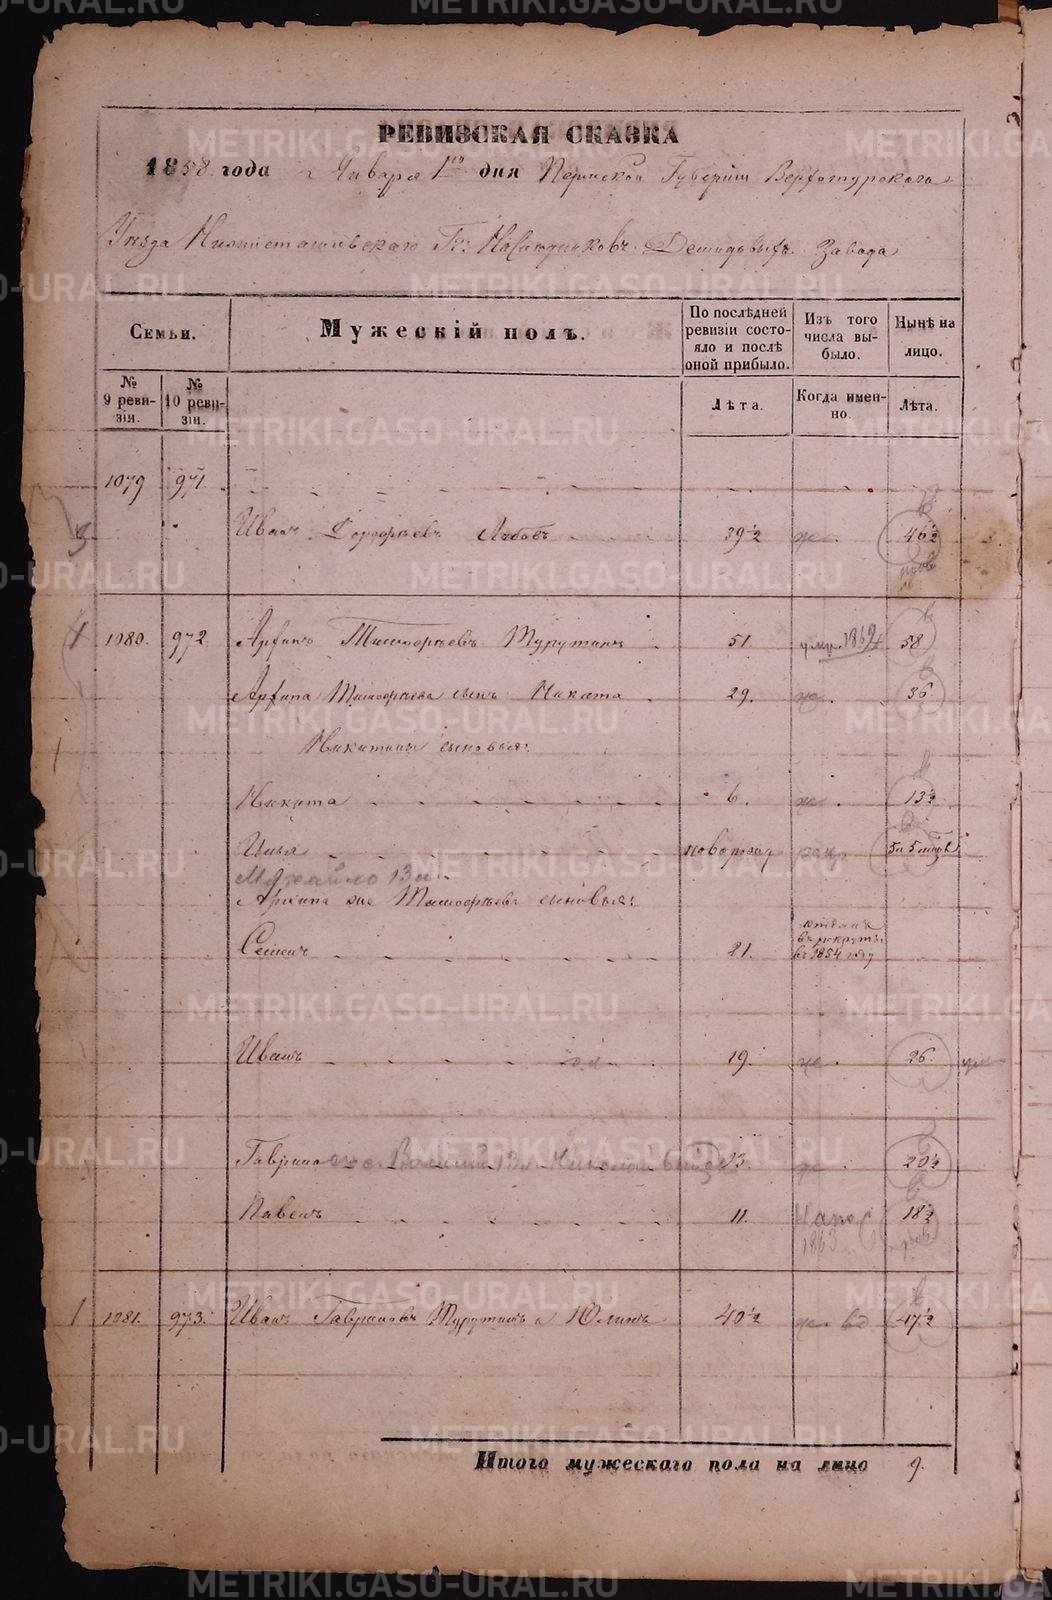 РЕВИЗСКАЯ СКАЗКА
1858 года Января 1го дня Пермской Губернiи Верхотурскаго
Уѣзда Нижнетагильскаго Гг: Наслѣдниковъ Демидовыхъ Завода
Семьи.
Мужескiй полъ.
По послѣдней ревизiи состояло и послѣ оной прибыло.
Изъ того числа выбыло.
Нынѣ на лицо.
№ 9 ревизiя.
№ 10 ревизiи.
Лѣта.
Когда именно.
Лѣта.
1079 971.
3 Иванъ Дорофѣевъ 39½ ж 46½
1 1080. 972 Архипъ Тимофѣевъ Турутинъ 51. умр. 1862 58
Архипа Тимофѣева сынъ Никита 29. ж. 36
Никитины сыновья:
Никита 6. ж. 13½
Илья новорожд 5 м
Михайло 13
Архипа же Тимофѣева сыновья:
Семенъ 21. въ рекруты въ 1854 году
Иванъ 19. ж 26.
Гаврило Василий 13 Николай 13 ж 20½
Павелъ 11. 1863 18½
1 1081. 973. Иванъ Гавриловъ Турутинъ и Юлинъ 40½ ж. вд 47½
Итого мужескаго пола на лицо 9.
METRIKI.GASO-URAL.RU